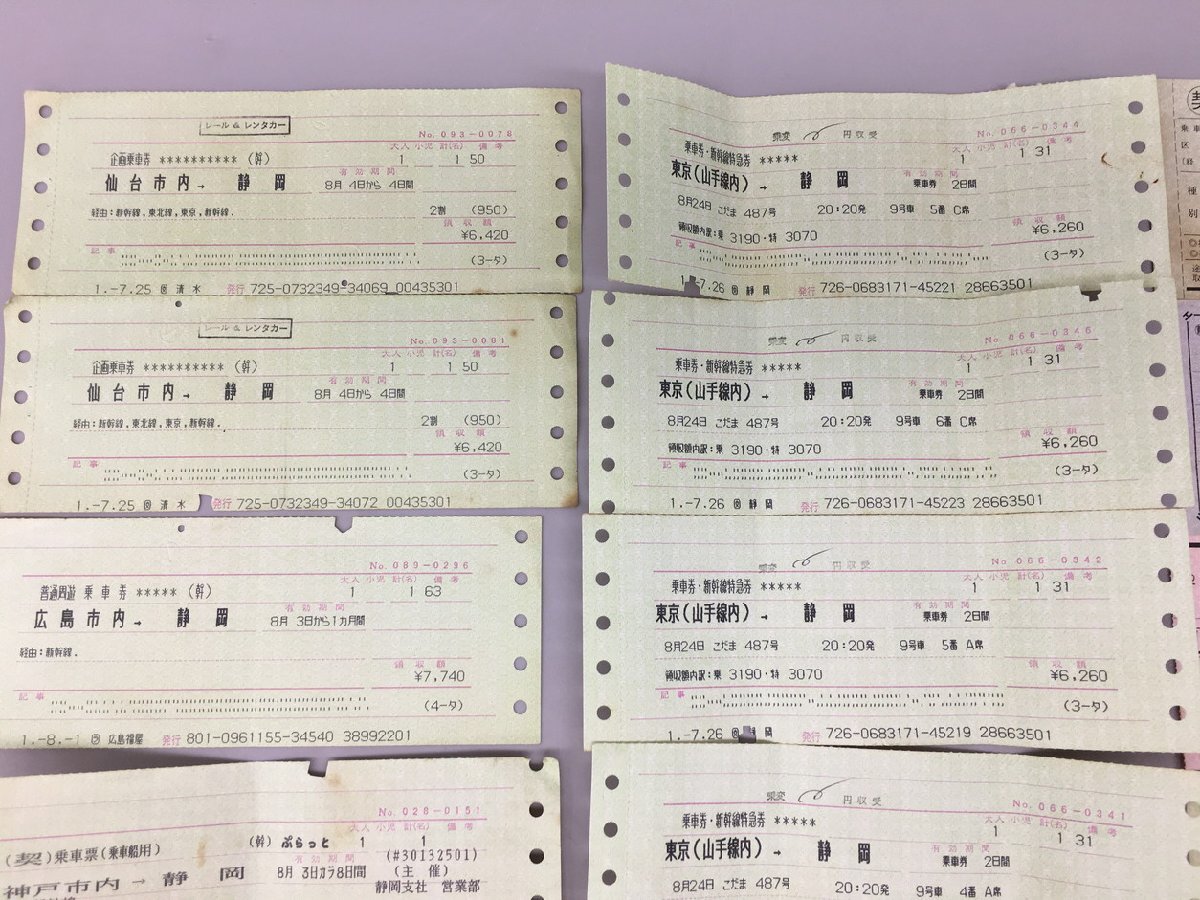 レール & レンタカー
No. 093-0078
大人 小児 計(名) 備考
企画乗車券 ********** (幹) 1 1 50
有効期間
仙台市内→ 静岡 8月 4日から 4日間
経由:新幹線,東北線,東京,新幹線. 2割 (950)
領収額
¥6,420
記事
(3-タ)
1.-7.25 清水 発行 725-0732349-34069 00435301
レール & レンタカー
No. 093-0081
大人 小児 計(名) 備考
企画乗車券 ********** (幹) 1 1 50
有効期間
仙台市内→ 静岡 8月 4日から 4日間
経由:新幹線,東北線,東京,新幹線. 2割 (950)
領収額
¥6,420
記事
(3-タ)
1.-7.25 清水 発行 725-0732349-34072 00435301
No. 089-0296
大人 小児 計(名) 備考
普通周遊 乗車券 ***** (幹) 1 1 63
有効期間
広島市内→ 静岡 8月 3日から1カ月間
経由:新幹線.
領収額
¥7,740
記事
(4-タ)
1.-8.-1 広島福屋 発行 801-0961155-34540 38992201
No. 028-0151
大人 小児 計(名) 備考
(契)乗車票(乗車船用) (幹) ぷらっと 1 1
有効期間 (#30132501)
神戸市内→静岡 8月 3日カラ8日間 (主催)
静岡支社 営業部
乗変 円収受
No. 066-0344
大人 小児 計(名) 備考
乗車券・新幹線特急券 ***** 1 1 31
有効期間
東京(山手線内)→ 静岡 乗車券 2日間
8月24日 こだま 487号 20:20発 9号車 5番 C席
領収額
領収額内訳:乗 3190・特 3070 ¥6,260
記事
(3-タ)
1.-7.26 静岡 発行 726-0683171-45221 28663501
乗変 円収受
No. 066-0346
大人 小児 計(名) 備考
乗車券・新幹線特急券 ***** 1 1 31
有効期間
東京(山手線内)→ 静岡 乗車券 2日間
8月24日 こだま 487号 20:20発 9号車 6番 C席
領収額
領収額内訳:乗 3190・特 3070 ¥6,260
記事
(3-タ)
1.-7.26 静岡 発行 726-0683171-45223 28663501
乗変 円収受
No. 066-0342
大人 小児 計(名) 備考
乗車券・新幹線特急券 ***** 1 1 31
有効期間
東京(山手線内)→ 静岡 乗車券 2日間
8月24日 こだま 487号 20:20発 9号車 5番 A席
領収額
領収額内訳:乗 3190・特 3070 ¥6,260
記事
(3-タ)
1.-7.26 静岡 発行 726-0683171-45219 28663501
乗変 円収受
No. 066-0341
大人 小児 計(名) 備考
乗車券・新幹線特急券 ***** 1 1 31
有効期間
東京(山手線内)→ 静岡 乗車券 2日間
8月24日 こだま 487号 20:20発 9号車 4番 A席